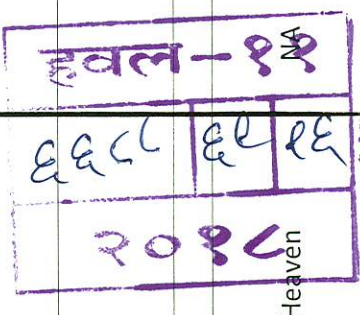 हवल-११
NA
६६८८ ६९ ९६
२०१८
Heaven